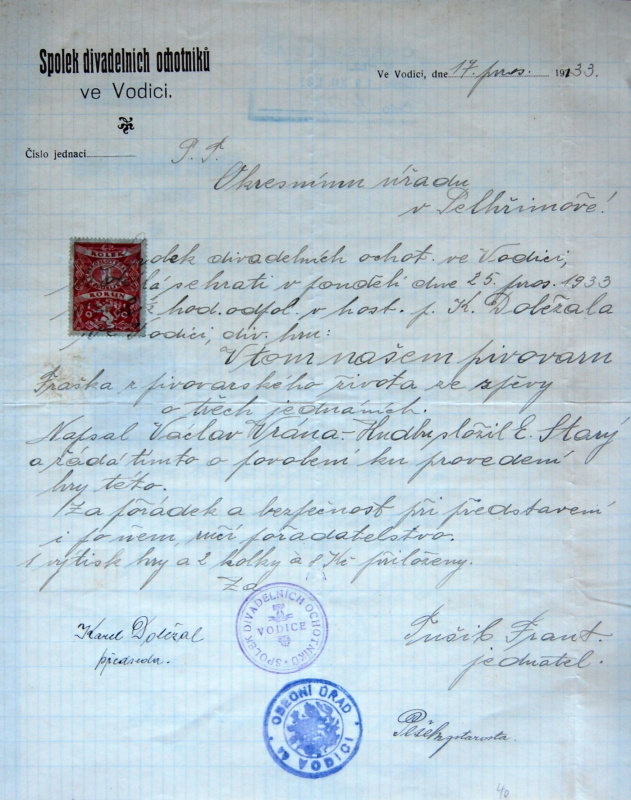 Spolek divadelních ochotníků
ve Vodici.
Ve Vodici, dne 17. pros. 1933.
Číslo jednací
P. T.
Okresnímu úřadu
v Pelhřimově!
KOLEK
KORUN
divadelních ochot. ve Vodici,
sehrati v pondělí dne 25. pros. 1933
hod. odpol. v host. p. K. Doležala
Vodici, div. hru:
V tom našem pivovaru
Fraška z pivovarského života se zpěvy
o třech jednáních.
Napsal Václav Vrána - Hudbu složil E. Starý
a žádá tímto o povolení ku provedení
hry této.
Za pořádek a bezpečnost při představení
i po něm, ručí pořadatelstvo.
1 výtisk hry a 2 kolky à 8 Kč přiloženy.
Za
SPOLEK DIVADELNÍCH OCHOTNÍKŮ
VODICE
Karel Doležal
předseda.
Frant.
jednatel.
OBECNÍ ÚŘAD
VODICI
starosta.
40